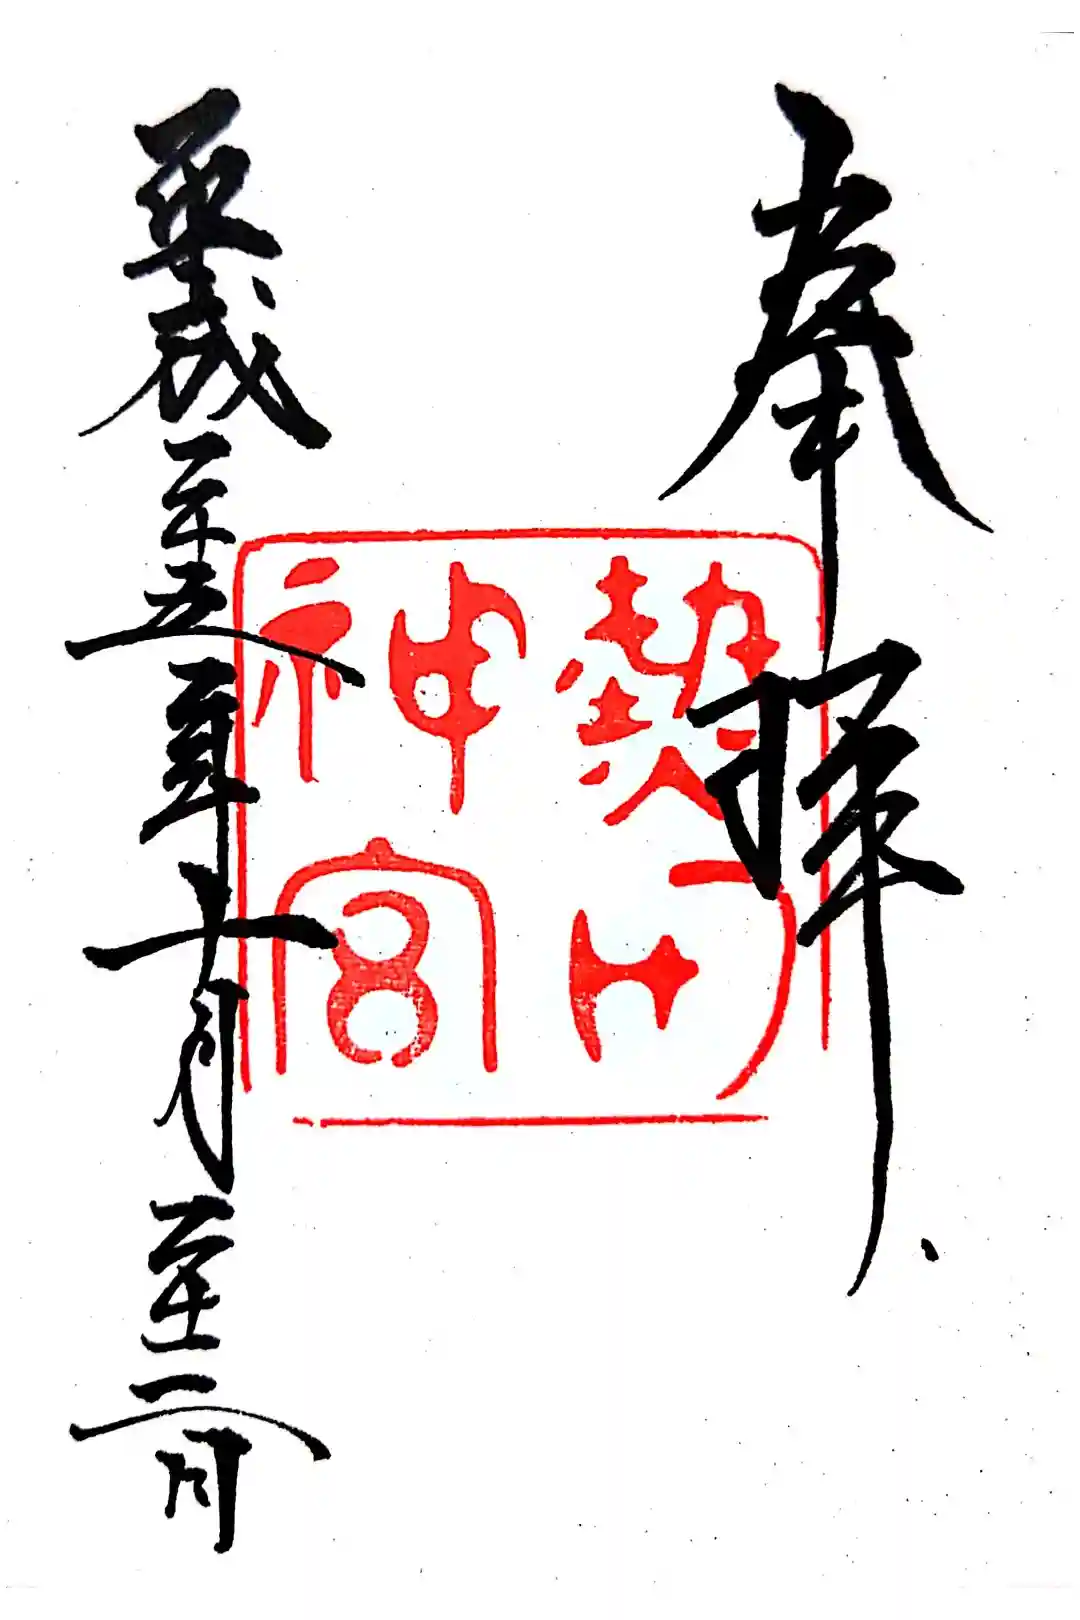 奉拝
熱田
神宮
平成二十五年十月二十三日